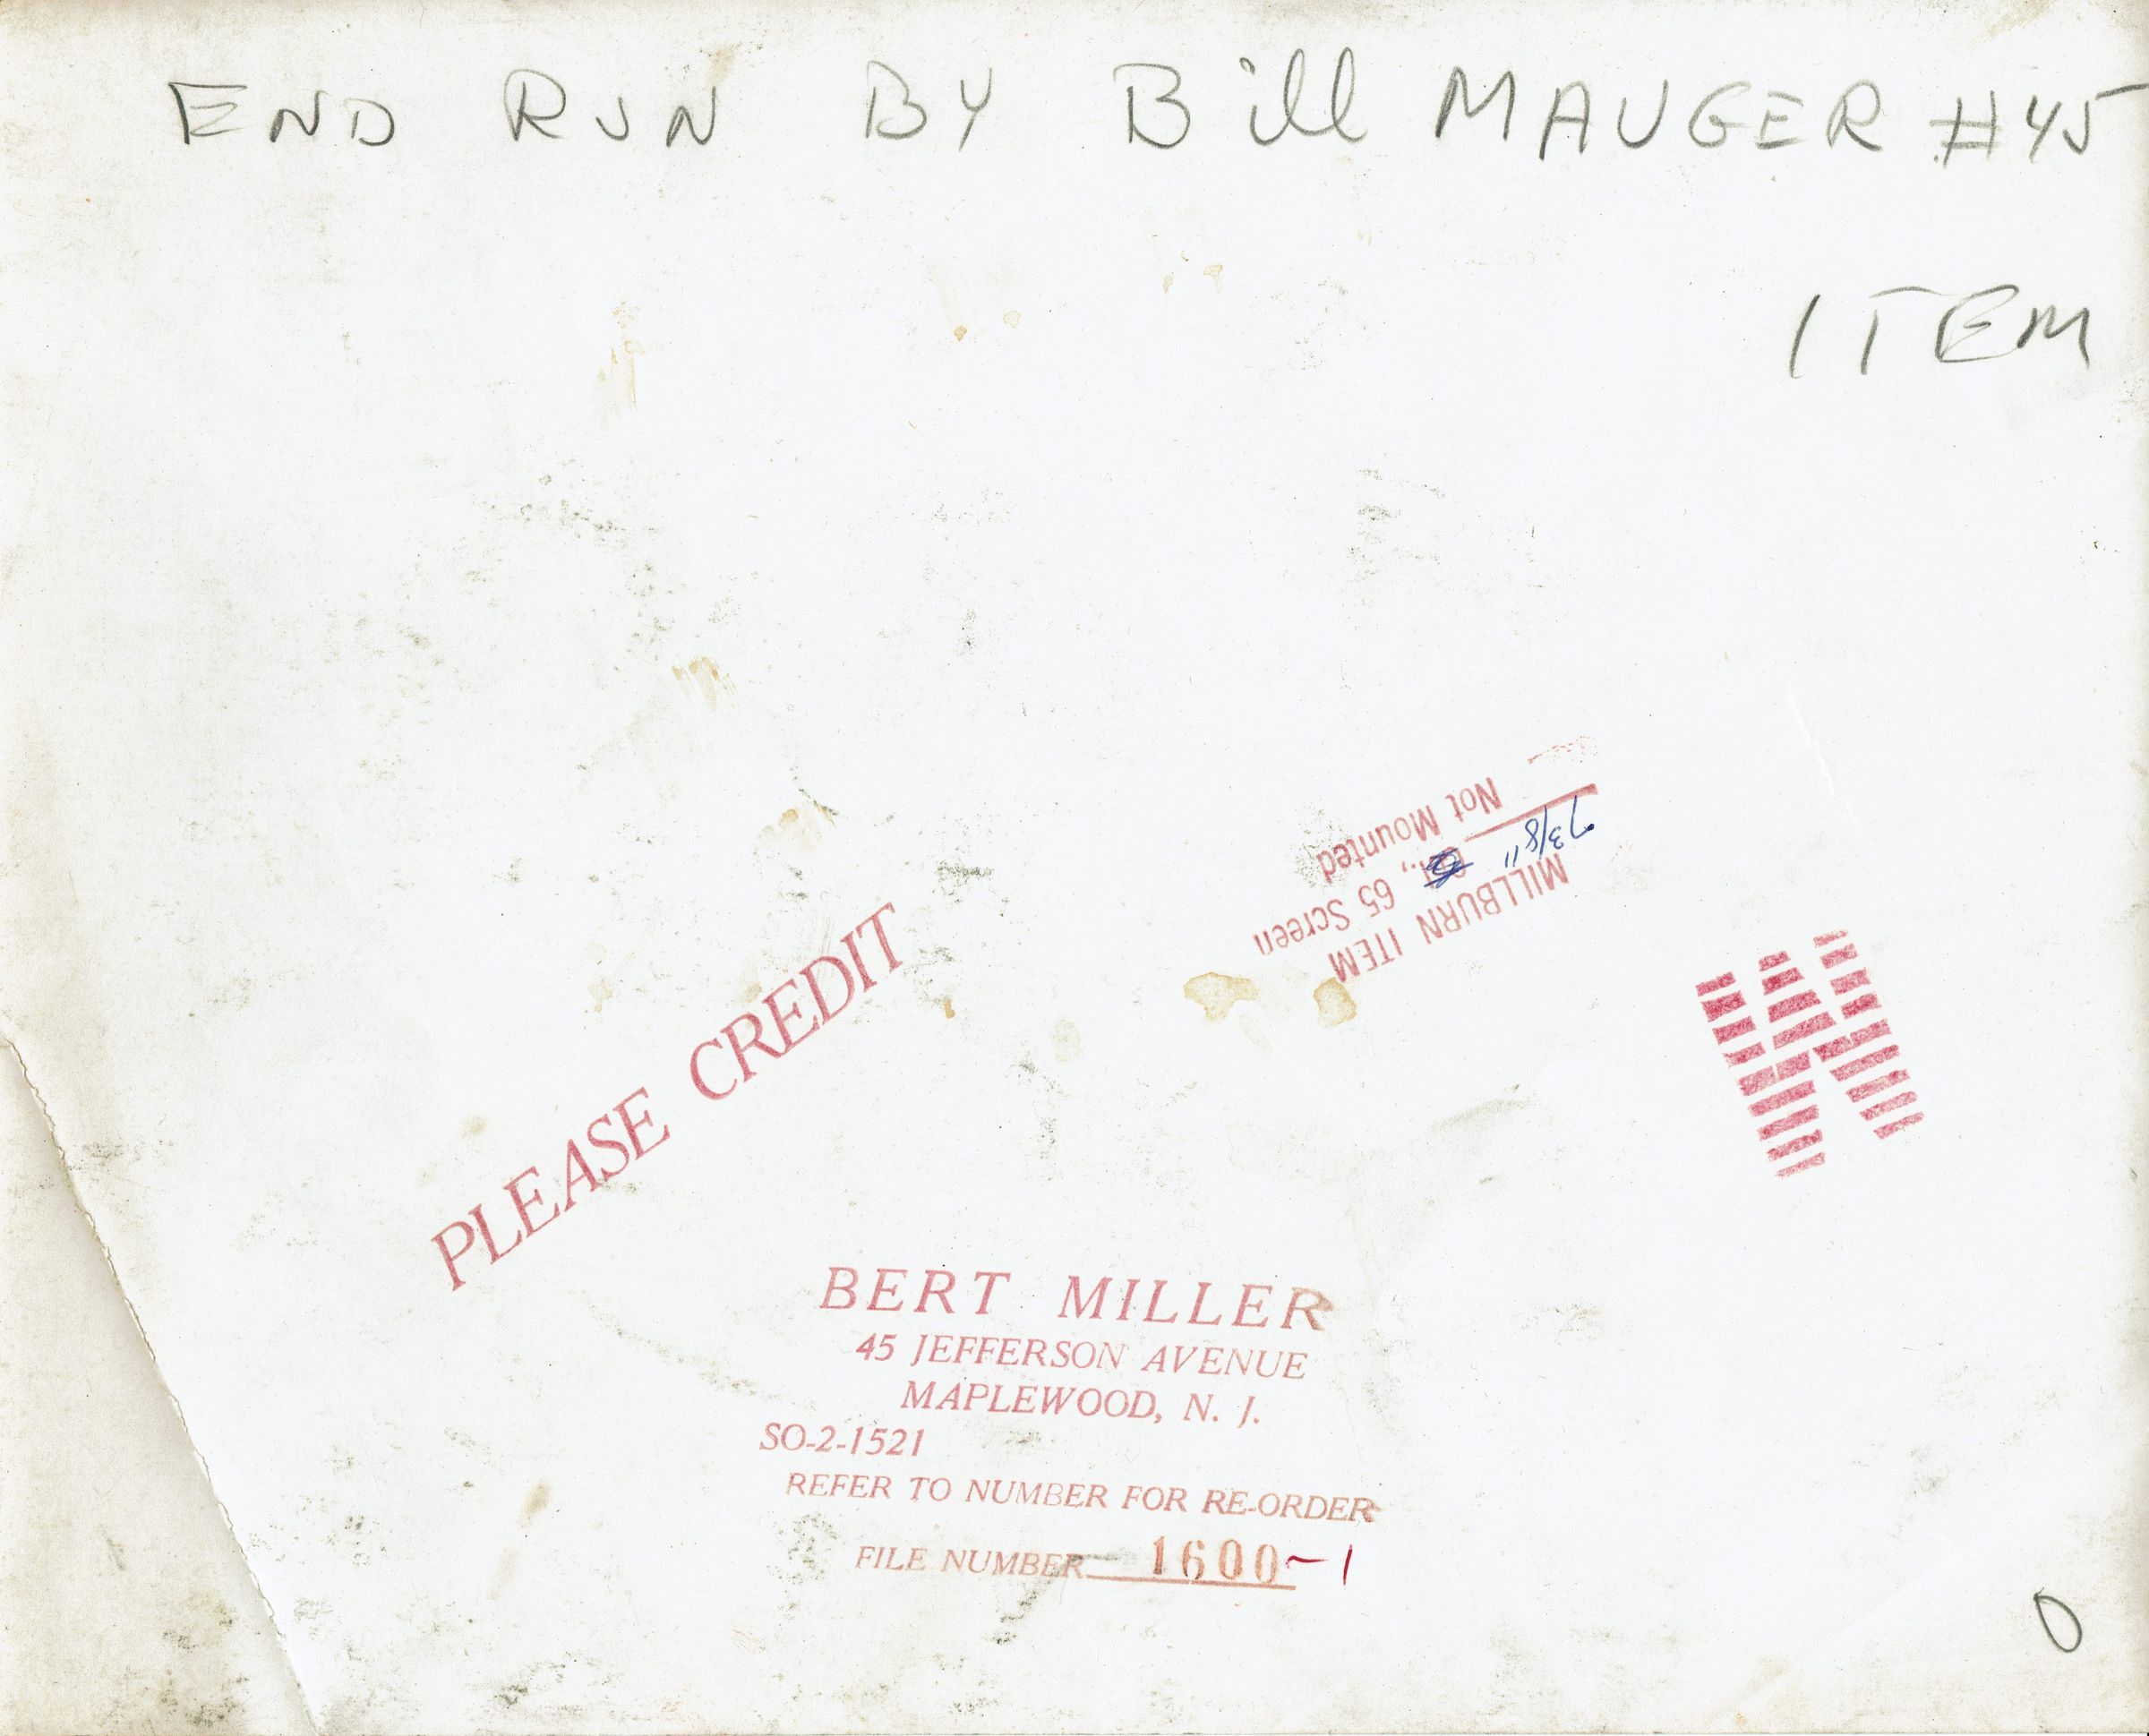 END RUN BY Bill MAUGER #45
ITEM
MILLBURN ITEM
7 3/8" , 65 Screen
Not Mounted
PLEASE CREDIT
BERT MILLER
45 JEFFERSON AVENUE
MAPLEWOOD, N. J.
SO-2-1521
REFER TO NUMBER FOR RE-ORDER
FILE NUMBER 1600-1
0